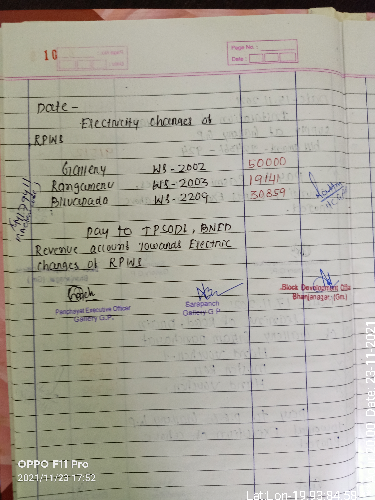 16
Page No.:
Date:
Date -
Electricity changes of
RPWS
Gallery WS-2002 50000
Rangameru WS-2003 19141
Bhuapada WS-2209 30859
Pay to TPSODL, BNED
Revenue account towards Electric
changes of RPWS
Panchayat Executive Officer
Gallery G.P.
Sarapanch
Gallery G.P.
Block Development Offi
Bhanjanagar (Gm.)
OPPO F11 Pro
2021/11/23 17:52
Date 23-11-2021
Lat Lon-19.93 84.58